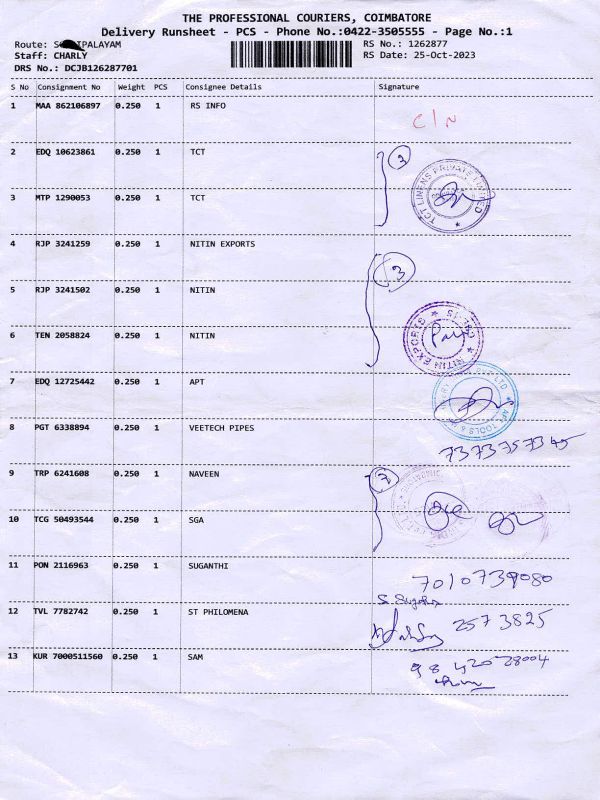 THE PROFESSIONAL COURIERS, COIMBATORE
Delivery Runsheet - PCS - Phone No.:0422-3505555 - Page No.:1
Route: PALAYAM
RS No.: 1262877
Staff: CHARLY
RS Date: 25-Oct-2023
DRS No.: DCJB126287701
S No Consignment No Weight PCS Consignee Details Signature
1 MAA 862106897 0.250 1 RS INFO
C/N
2 EDQ 10623861 0.250 1 TCT
TCT LINENS PRIVATE LIMITED
3 MTP 1290053 0.250 1 TCT
4 RJP 3241259 0.250 1 NITIN EXPORTS
3
5 RJP 3241502 0.250 1 NITIN
6 TEN 2058824 0.250 1 NITIN
NITIN EXPORTS
7 EDQ 12725442 0.250 1 APT
8 PGT 6338894 0.250 1 VEETECH PIPES
7373757345
9 TRP 6241608 0.250 1 NAVEEN
10 TCG 50493544 0.250 1 SGA
11 PON 2116963 0.250 1 SUGANTHI
7010739080
12 TVL 7782742 0.250 1 ST PHILOMENA
2573825
13 KUR 7000511560 0.250 1 SAM
98 420 28004